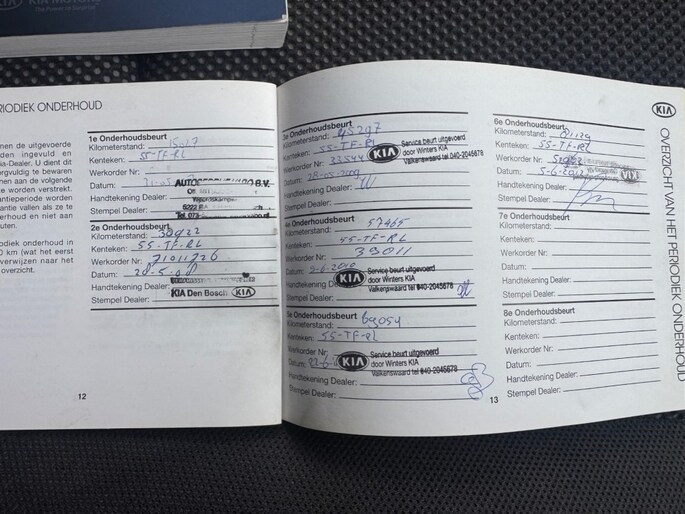 KIA KIA MOTORS
The Power to Surprise
PERIODIEK ONDERHOUD
nen de uitgevoerde
den ingevuld en
ia-Dealer. U dient dit
orgvuldig te bewaren
men aan de volgende
te worden verstrekt.
antieperiode worden
antie vallen als ze te
derhoud en niet aan
uten.
odiek onderhoud in
0 km (wat het eerst
verwijzen naar het
overzicht.
1e Onderhoudsbeurt
Kilometerstand: 15017
Kenteken: 55-TF-RL
Werkorder Nr:
Datum:
Handtekening Dealer:
Stempel Dealer:
2e Onderhoudsbeurt
Kilometerstand: 30922
Kenteken: 55-TF-RL
Werkorder Nr: 71011226
Datum:
Handtekening
Stempel Dealer: KIA Den Bosch KIA
12
Onderhoudsbeurt
Kilometerstand: 45297
Kenteken: 55-TF-RL
Werkorder Nr: 33544
Datum: 28-05-2009
Handtekening Dealer:
Stempel Dealer:
KIA Service beurt uitgevoerd
door Winters KIA
Valkenswaard tel 040-2045678
4e Onderhoudsbeurt
Kilometerstand: 57465
Kenteken: 55-TF-RL
Werkorder Nr: 39011
Datum: 2-6-2010
Handtekening
Stempel Dealer:
KIA Service beurt uitgevoerd
door Winters KIA
Valkenswaard tel 040-2045678
5e Onderhoudsbeurt
Kilometerstand: 69054
Kenteken: 55-TF-RL
Werkorder Nr:
Datum:
Handtekening Dealer:
Stempel Dealer:
KIA Service beurt uitgevoerd
door Winters KIA
Valkenswaard tel 040-2045678
13
6e Onderhoudsbeurt
Kilometerstand: 81129
Kenteken: 55-TF-RL
Werkorder Nr:
Datum: 5-6-2012
Handtekening Dealer:
Stempel Dealer:
KIA
7e Onderhoudsbeurt
Kilometerstand:
Kenteken:
Werkorder Nr:
Datum:
Handtekening Dealer:
Stempel Dealer:
8e Onderhoudsbeurt
Kilometerstand:
Kenteken:
Werkorder Nr:
Datum:
Handtekening Dealer:
Stempel Dealer:
KIA
OVERZICHT VAN HET PERIODIEK ONDERHOUD